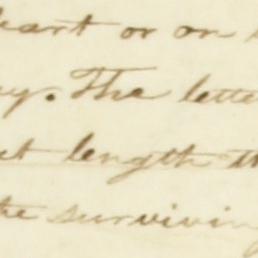 or on
The lette
length th
the surviving